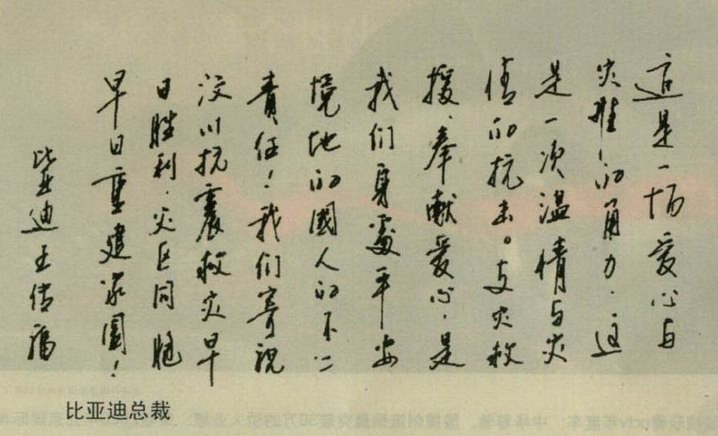 這是一场爱心与
灾难的角力.这
是一次温情与灾
情的抗击。支灾救
援.奉献爱心.是
我们身處平安
境地的國人的不二
責任!我们寄祝
汶川抗震救灾早
日胜利.灾区同胞
早日重建家園!
比亚迪王传福
比亚迪总裁